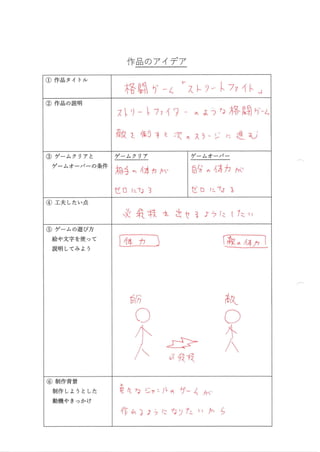 作品のアイデア
① 作品タイトル
格闘ゲーム「ストリートファイト」
② 作品の説明
ストリートファイターのような格闘ゲーム
敵を倒すと次のステージに進む
③ ゲームクリアと
ゲームオーバーの条件
ゲームクリア
相手の体力が
ゼロになる
ゲームオーバー
自分の体力が
ゼロになる
④ 工夫したい点
必殺技を出せるようにしたい
⑤ ゲームの遊び方
絵や文字を使って
説明してみよう
体力
敵の体力
自分
敵
必殺技
⑥ 制作背景
制作しようとした
動機やきっかけ
色々なジャンルのゲームが
作れるようになりたいから